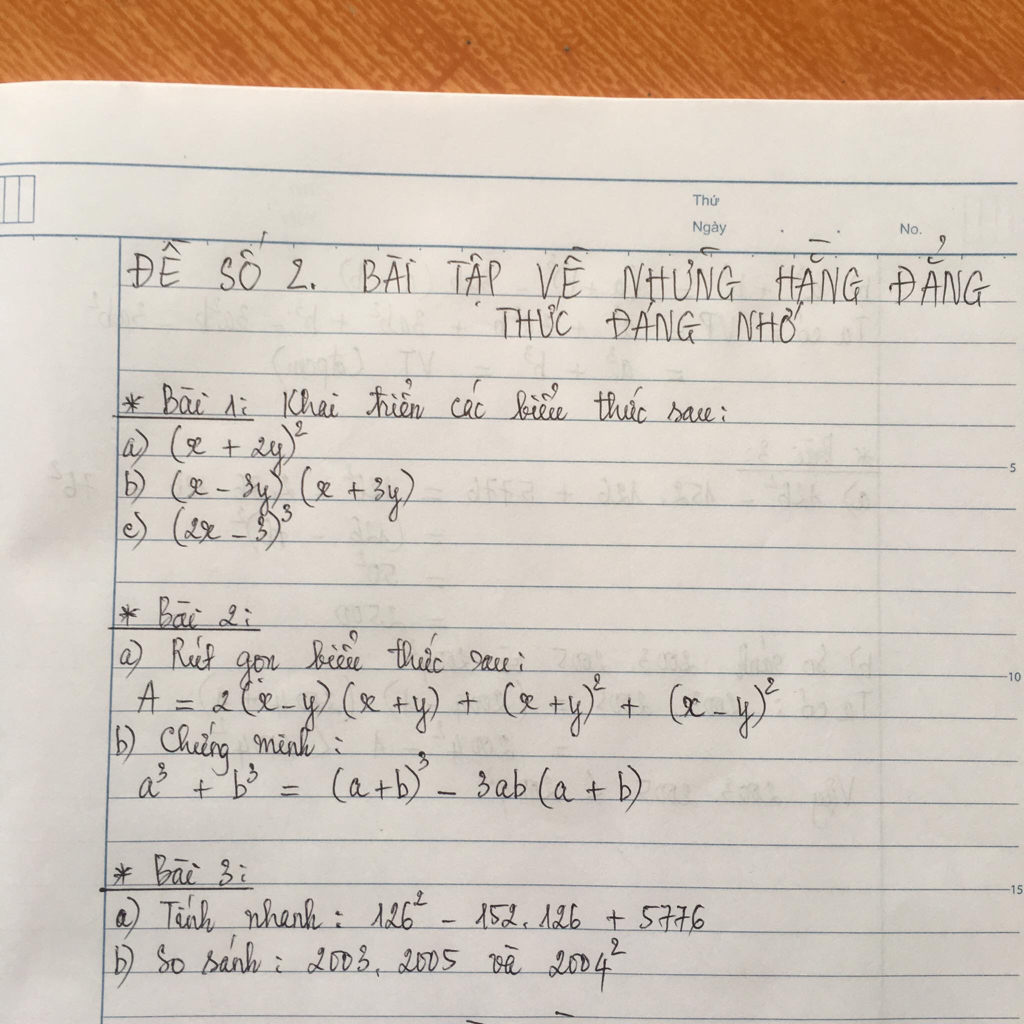 Thứ
Ngày . . No.
ĐỀ SỐ 2. BÀI TẬP VỀ NHỮNG HẰNG ĐẲNG
THỨC ĐÁNG NHỚ
* Bài 1: Khai triển các biểu thức sau:
a) (x + 2y)²
5
b) (x - 3y) (x + 3y)
c) (2x - 3)³
* Bài 2:
a) Rút gọn biểu thức sau:
10
A = 2(x-y)(x+y) + (x+y)² + (x-y)²
b) Chứng minh:
a³ + b³ = (a+b)³ - 3ab(a+b)
* Bài 3:
15
a) Tính nhanh: 126² - 152.126 + 5776
b) So sánh: 2003.2005 và 2004²